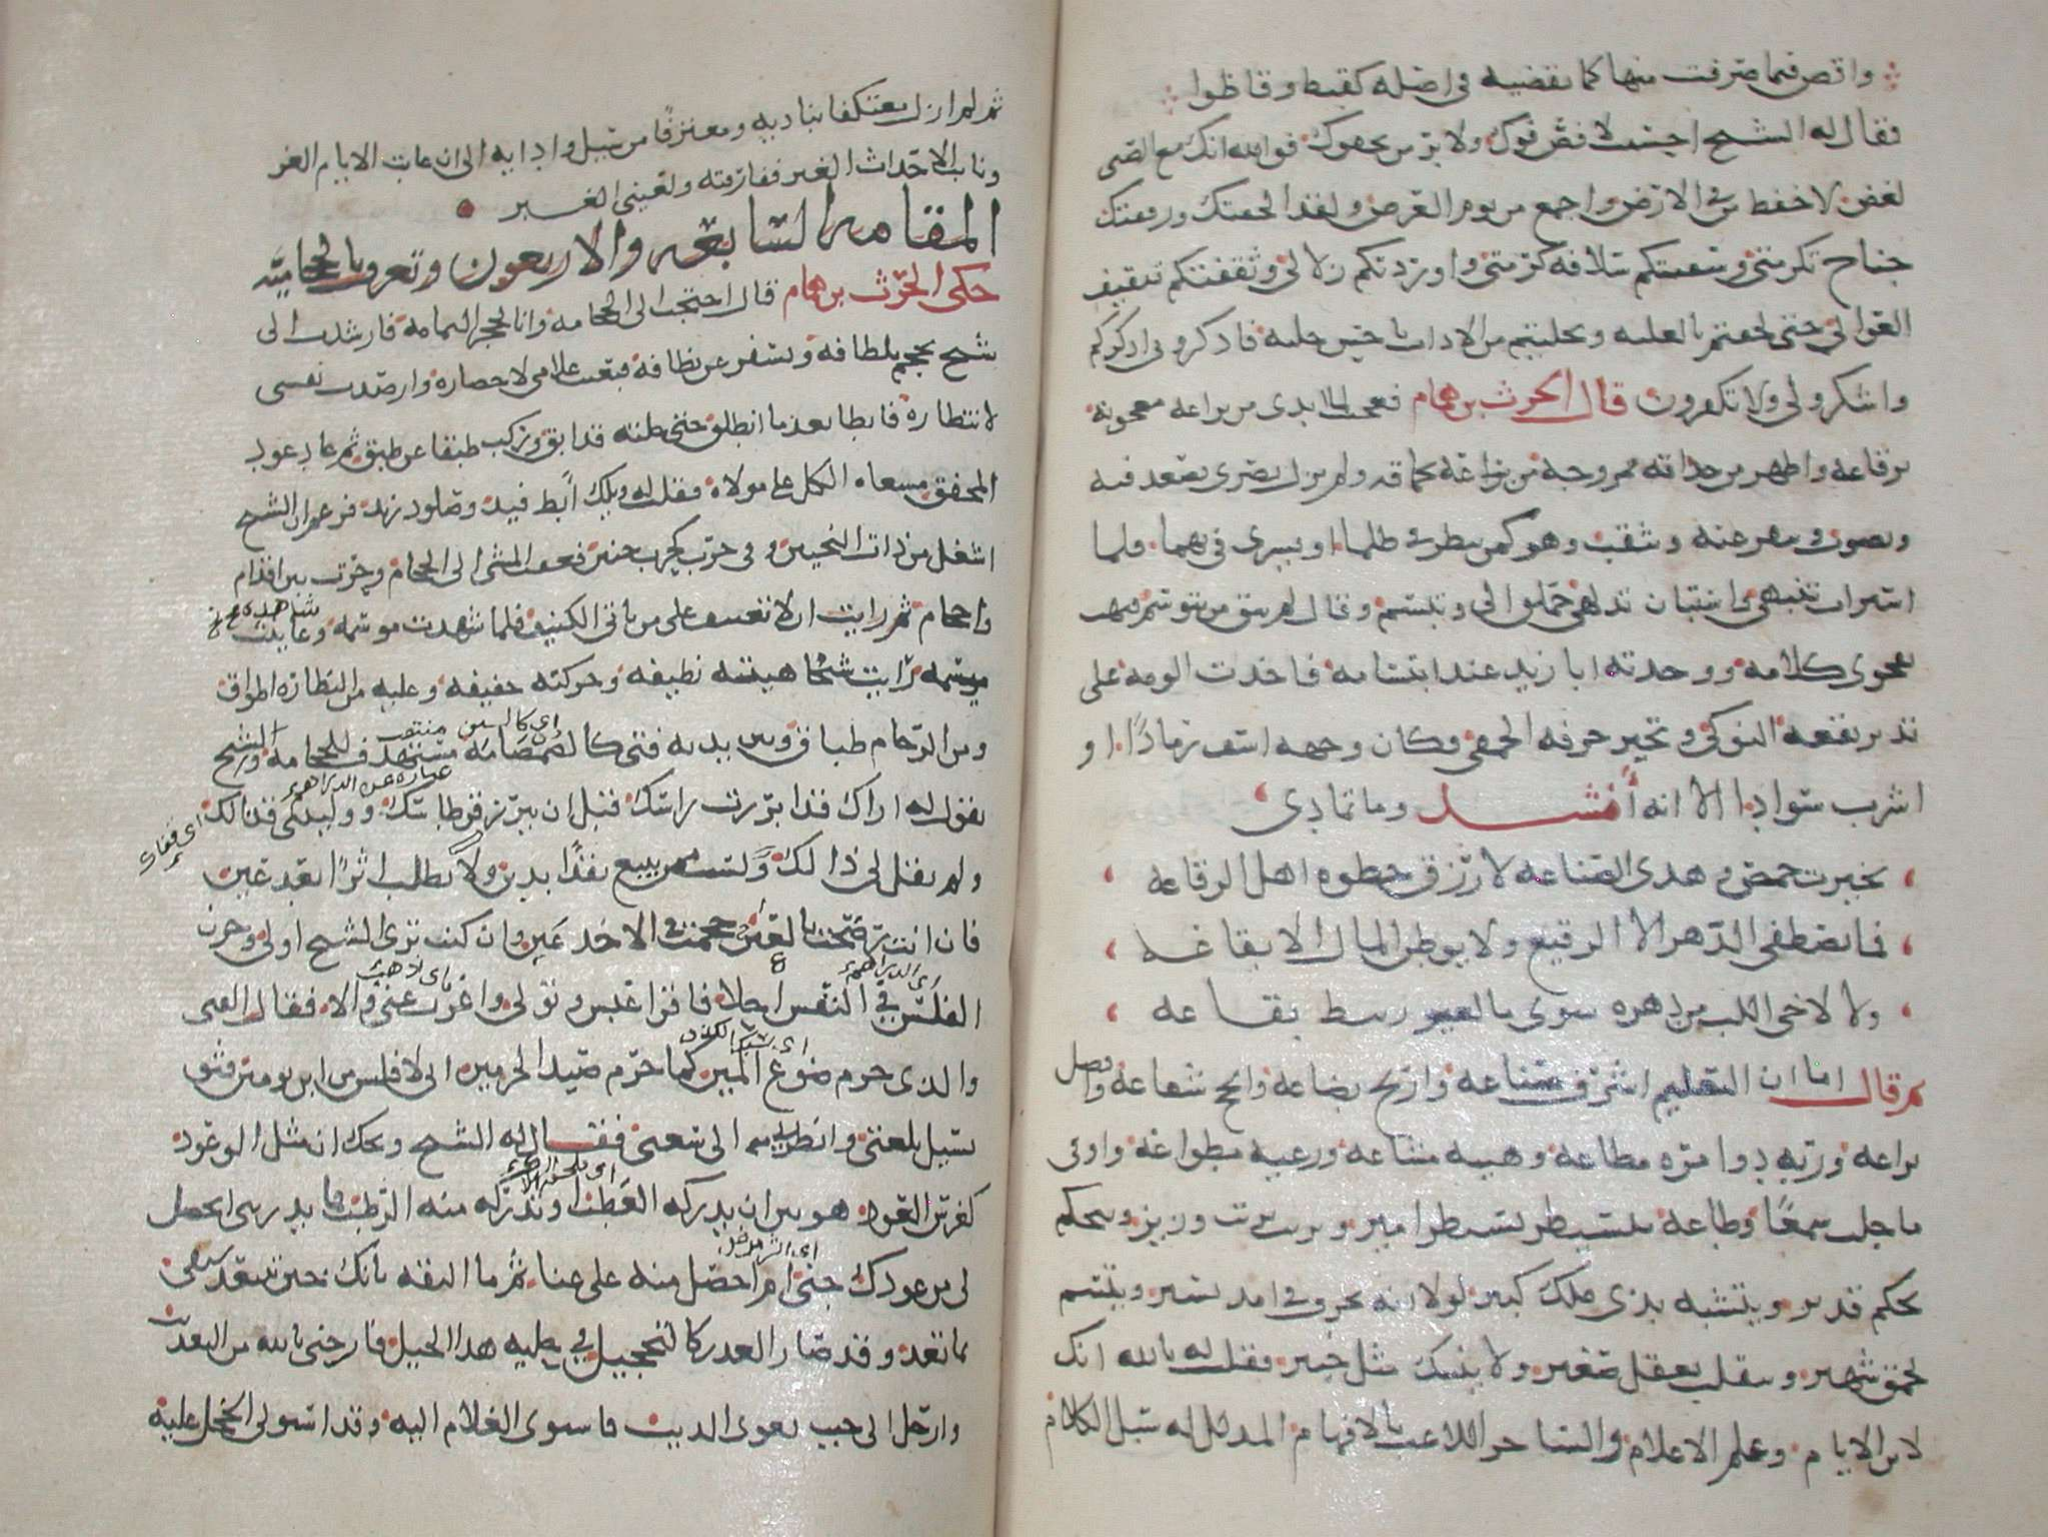 واقص فيما صرفت منها كما تقضيه في اصله كقيظ وقاظوا
فقال له الشيخ احسنت لا فض فوك ولا بر من يجفوك فوالله انك مع الصبى
الغض لاحفظ من الارض واجمع من يوم العرض ولقد الحقتك ورفقتك
جناح تكرمتي وسقيتكم سلافة كرمتي واوردتكم زلالي وثقفتكم تثقيف
العوالي حتى لحقتم بالعلية وتحليتم من الاداب باحسن حلية فاذكروني اذكركم
واشكروا لي ولا تكفرون قال الحرث بن همام فعجبت لما ابدى من براعة معجونة
برقاعة واظهر من حذاقة ممزوجة من براعة بحماقة ولم يزل بصري يصعد فيه
ويصوب وينقر عنه وينقب وهو كمن ينظر في ظلماء او يسري في بهماء فلما
استراث تنبهي واستبان تدلهي حملق الي وتبسم وقال لم يبق من يتوسم فبهت
لفحوى كلامه ووجدته ابا زيد عند ابتسامه فاخذت الومه على
تدير بقعة النوكى وتخير حرفة الحمقى فكان وجهه اسف رمادا او
اشرب سوادا الا انه أنشد وما تمادى
تخيرت حمص وهذي الصناعه لارزق حظوة اهل الرقاعه
فما يصطفي الدهر الا الرقيع ولا يوطن المال الا بقاعه
ولا لاخي اللب من دهره سوى ما لعير ربيط بقاعه
ثم قال اما ان التعليم اشرف صناعة واربح بضاعة وانجح شفاعة وافضل
براعة وربه ذو امرة مطاعة وهيبة مشاعة ورعية مطواعة واوتي
ما جلب سمعا وطاعة يتسيطر تسيطر امير ويرتب ترتيب وزير ويتحكم
تحكم قدير ويتشبه بذي ملك كبير لولا انه يخرف في امد يسير ويتسم
بحمق شهير ويتقلب بعقل صغير ولا ينبئك مثل خبير فقلت له بالله انك
لابن الايام وعلم الاعلام والساحر اللاعب بالافهام المذلل له سبل الكلام
ثم لم ازل معتكفا بناديه ومعترفا من سيل واديه الى ان غابت الايام الغر
ونابت الاحداث الغبر ففارقته ولعيني العبر
المقامة السابعة والاربعون وتعرف بالحجامية
حكى الحرث بن همام قال احتجت الى الحجامة وانا بحجر اليمامة فارشدت الى
شيخ يحجم بلطافة ويسفر عن نظافة فبعثت غلامي لاحضاره وارصدت نفسي
لانتظاره فابطا بعد ما انطلق حتى خلته قد ابق وركب طبقا عن طبق ثم عاد عود
المخفق مسعاه الكل على مولاه فقلت له ويلك أبطء فند وصلود زند فزعم ان الشيخ
اشغل من ذات النحيين وفي حرب كحرب حنين فعفت المشي الى الحجام وحرت بين اقدام
واحجام ثم رايت ان لا تعنيف على من ياتي الكنيف فلما شهدت موسمه وعاينت
شاهده
ميسمه رأيت شيخا هيئته نظيفة وحركته خفيفة وعليه من النظارة اطواق
ومن الزحام طباق وبين يديه فتى كالصمصامة مستهدف للحجامة والشيخ
اي كالسيف
منتصب
يقول له اراك قد ابرزت راسك قبل ان يبرز قرطاسك ووليتني قذالك
عبارة عن الدراهم
اي قفاك
ولم تقل لي ذا لك ولست ممن يبيع نقدا بدين ولا يطلب اثرا بعد عين
فان انت رضخت بالعين حجمت في الاخدعين وان كنت ترى الشح اولى وخزن
الفلس في النفس احلى فاقرا عبس وتولى واغرب عني والا فقال الفتى
والذي حرم صوغ المين كما حرم صيد الحرمين اني لافلس من ابن يومين فثق
بسيل تلعتي وانظرني الى سعتي فقال له الشيخ ويحك ان مثل الوعود
كغرس العود هو بين ان يدركه العطب او يدرك منه الرطب فما يدريني ايحصل
لي من عودك جنى ام احصل منه على ضنا ثم ما الثقة بانك حين تبتعد ستفي
بما تعد وقد صار الغدر كالتحجيل في حلية هذا الجيل فارحني بالله من التعذيب
وارحل الى حيث يعوي الذيب فاستوى الغلام اليه وقد استولى الخجل عليه